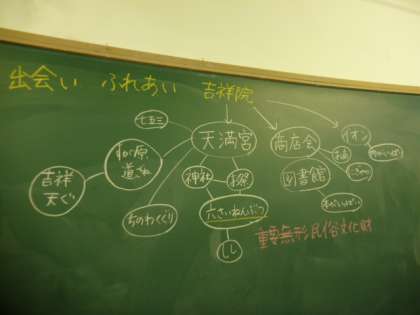 出会い ふれあい 吉祥院
七五三
天満宮
商店会
イオン
吉祥
天ぐ
神社
お祭
図書館
ちのわくぐり
六さいねんぶつ
しし
重要無形民俗文化財